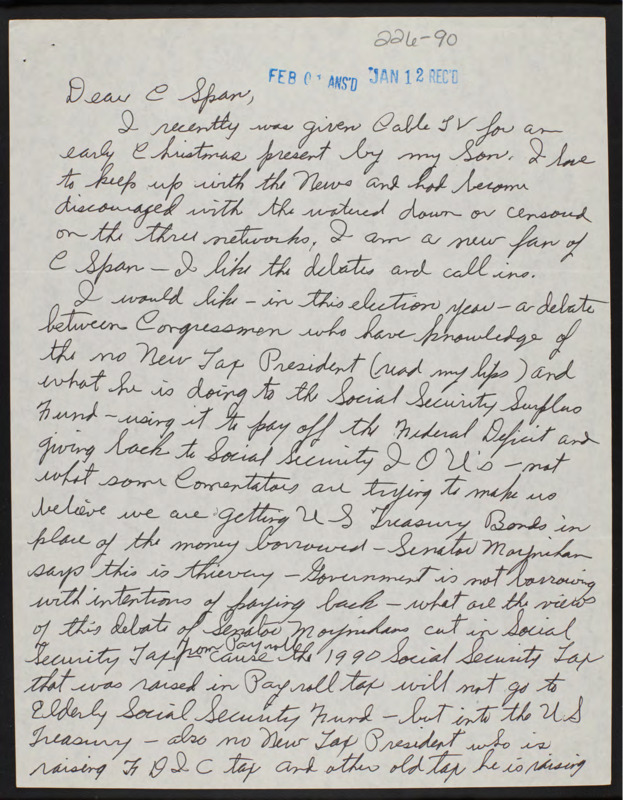 226-90
FEB 01 ANS'D JAN 12 REC'D
Dear C Span,
I recently was given Cable TV for an
early Christmas present by my Son. I love
to keep up with the News and had become
discouraged with the watered down or censored
on the three networks, I am a new fan of
C Span - I like the debates and call ins.
I would like - in this election year - a debate
between Congressmen who have knowledge of
the no New Tax President (read my lips) and
what he is doing to the Social Security Surplus
Fund - using it to pay off the Federal Deficit and
giving back to Social Security I O U's - not
what some Comentators are trying to make us
believe we are getting U S Treasury Bonds in
place of the money borrowed - Senator Moynihan
says this is thievery - Government is not borrowing
with intentions of paying back - what are the views
of this debate of Senator Moynihans cut in Social
Security Taxes from Payroll - cause the 1990 Social Security Tax
that was raised in Payroll tax will not go to
Elderly Social Security Fund - but into the U S
Treasury - also no New Tax President who is
raising F D I C tax and other old tax he is raising